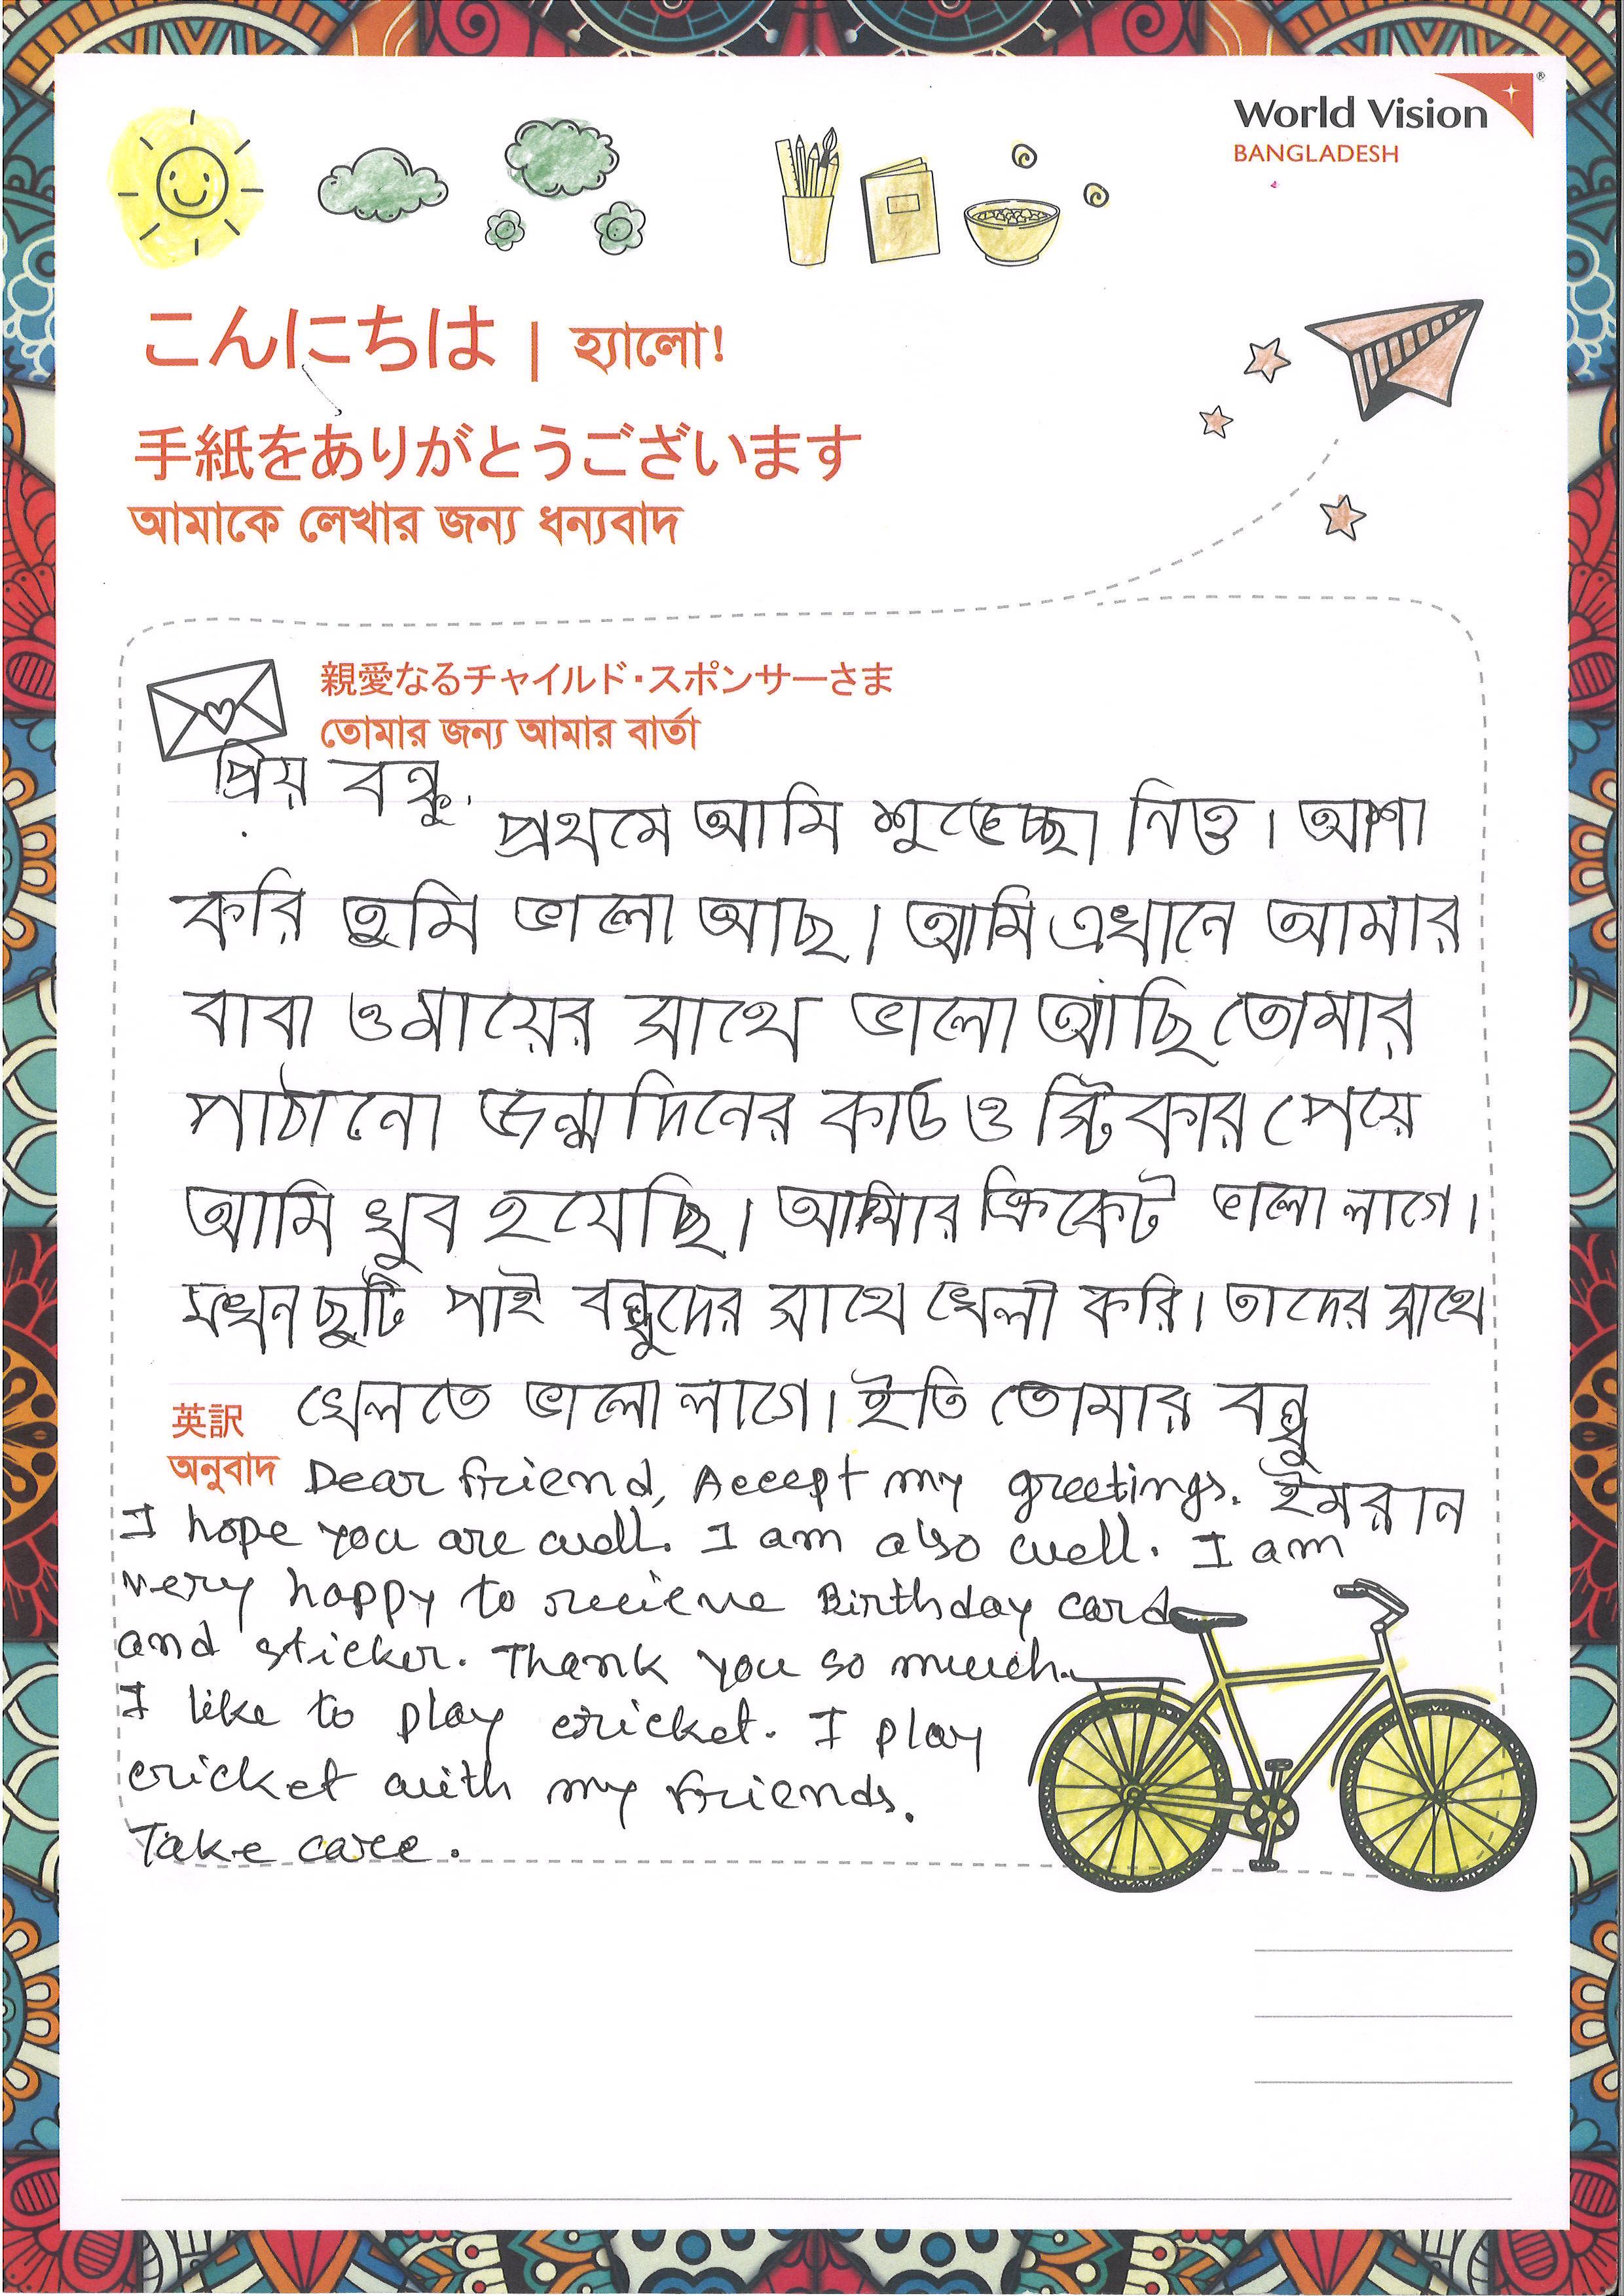 World Vision®
BANGLADESH
こんにちは | হ্যালো!
手紙をありがとうございます
আমাকে লেখার জন্য ধন্যবাদ
親愛なるチャイルド・スポンサーさま
তোমার জন্য আমার বার্তা
প্রিয় বন্ধু,
প্রথমে আমি শুভেচ্ছা নিও। আশা
করি তুমি ভালো আছ। আমি এখানে আমার
বাবা ও মায়ের সাথে ভালো আছি তোমার
পাঠানো জন্মদিনের কার্ড ও স্টিকার পেয়ে
আমি খুব হয়েছি। আমার ক্রিকেট ভালো লাগে।
যখন ছুটি পাই বন্ধুদের সাথে খেলা করি। তাদের সাথে
খেলতে ভালো লাগে। ইতি তোমার বন্ধু
ইমরান
英訳
অনুবাদ
Dear friend, Accept my greetings.
I hope you are well. I am also well. I am
very happy to recieve Birthday card
and sticker. Thank you so much.
I like to play cricket. I play
cricket with my friends.
Take care.